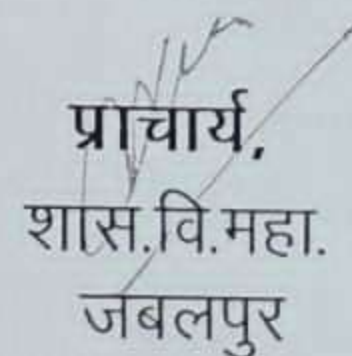 प्राचार्य,
शास.वि.महा.
जबलपुर